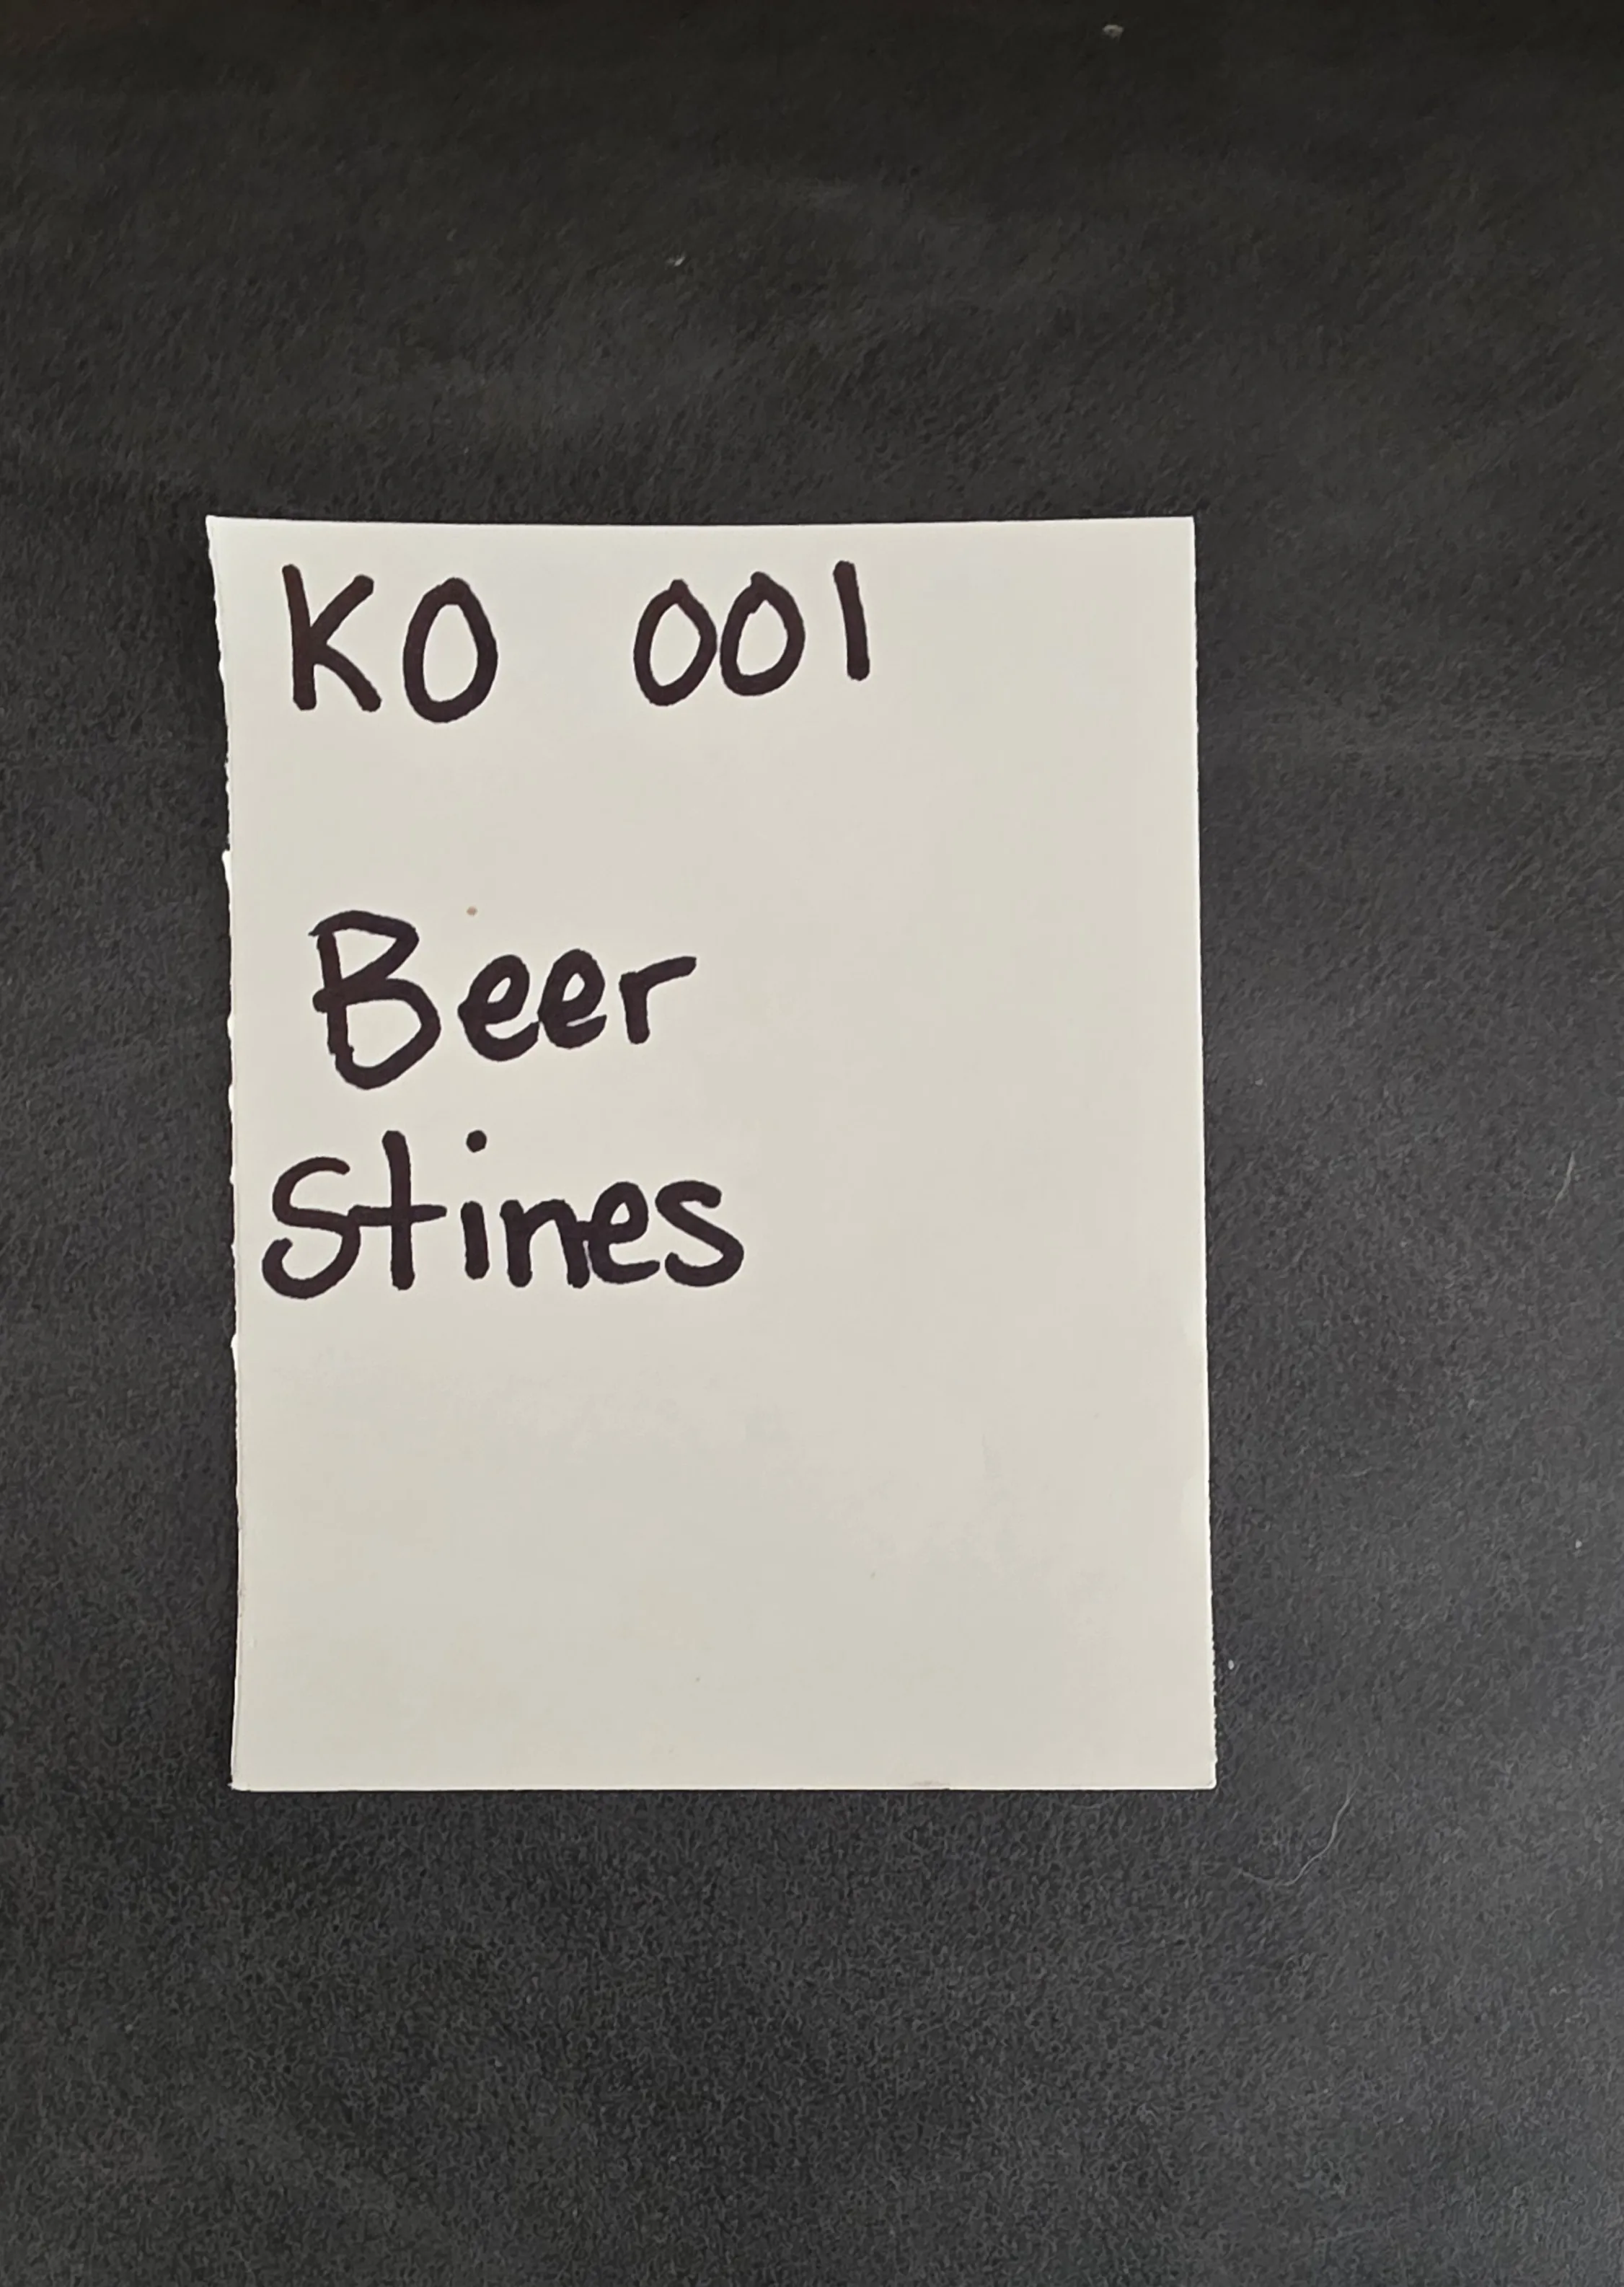 KO 001
Beer
Stines